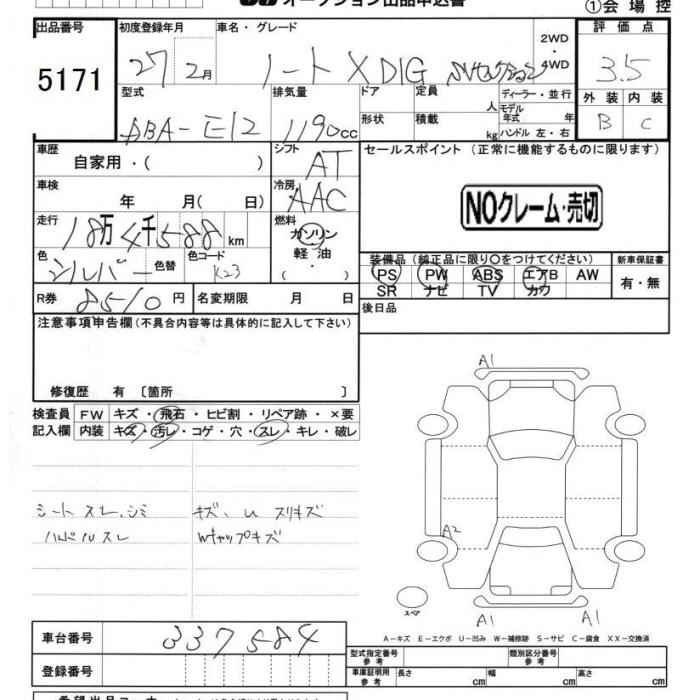 オークション出品申込書
①会場控
出品番号 初度登録年月 車名・グレード 評価点
5171 27 2月 ノート X DIG 2WD・4WD 3.5
型式 排気量 ドア 定員 人 ディーラー・並行 外装 内装
ABA-E12 1190cc 形状 積載 kg モデル年式 年 ハンドル 左・右 B C
車歴 自家用・( ) シフト AT セールスポイント (正常に機能するものに限ります)
車検 年 月( 日) 冷房 AAC NOクレーム・売切
走行 18万4千588km 燃料 ガソリン
色 シルバー 色替 色コード K23 軽油・( ・ ) 装備品(純正品に限り○をつけてください) 新車保証書
PS PW ABS エアB AW 有・無
SR ナビ TV カワ
R券 8510円 名変期限 月 日 後日品
注意事項申告欄(不具合内容等は具体的に記入して下さい)
修復歴 有 〔箇所 〕
検査員 FW キズ・飛石・ヒビ割・リペア跡・×要
記入欄 内装 キズ・汚レ・コゲ・穴・スレ・キレ・破レ
A1
シート スレ、シミ キズ、U スリキズ
ハンドルスレ Wキャップキズ
A2
スペア
A1 A1
A-キズ E-エクボ U-凹み W-補修跡 S-サビ C-腐食 XX-交換済
車台番号 337584
型式指定番号 参考 類別区分番号 参考
登録番号 車庫証明用 参考 長さ cm 幅 cm 高さ cm
希望出品コーナー